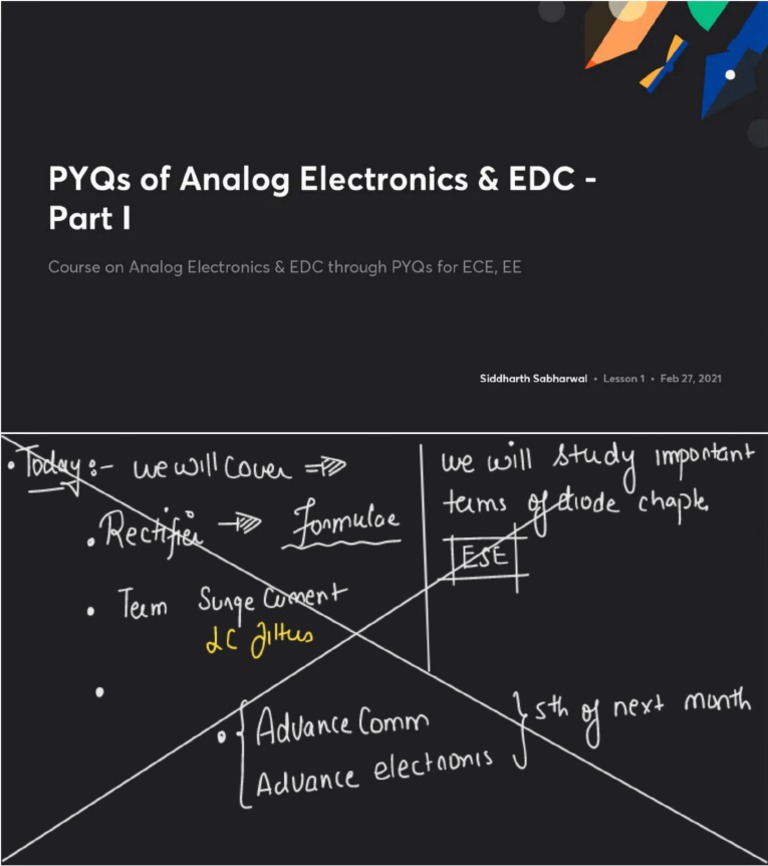 PYQs of Analog Electronics & EDC -
Part I
Course on Analog Electronics & EDC through PYQs for ECE, EE
Siddharth Sabharwal • Lesson 1 • Feb 27, 2021
• Today :- we will cover ⇒
• Rectifier → Formulae
• Term Surge Current
LC filters
•
we will study important
terms of diode chapte
ESE
• { Advance Comm
Advance electronis } 5th of next month